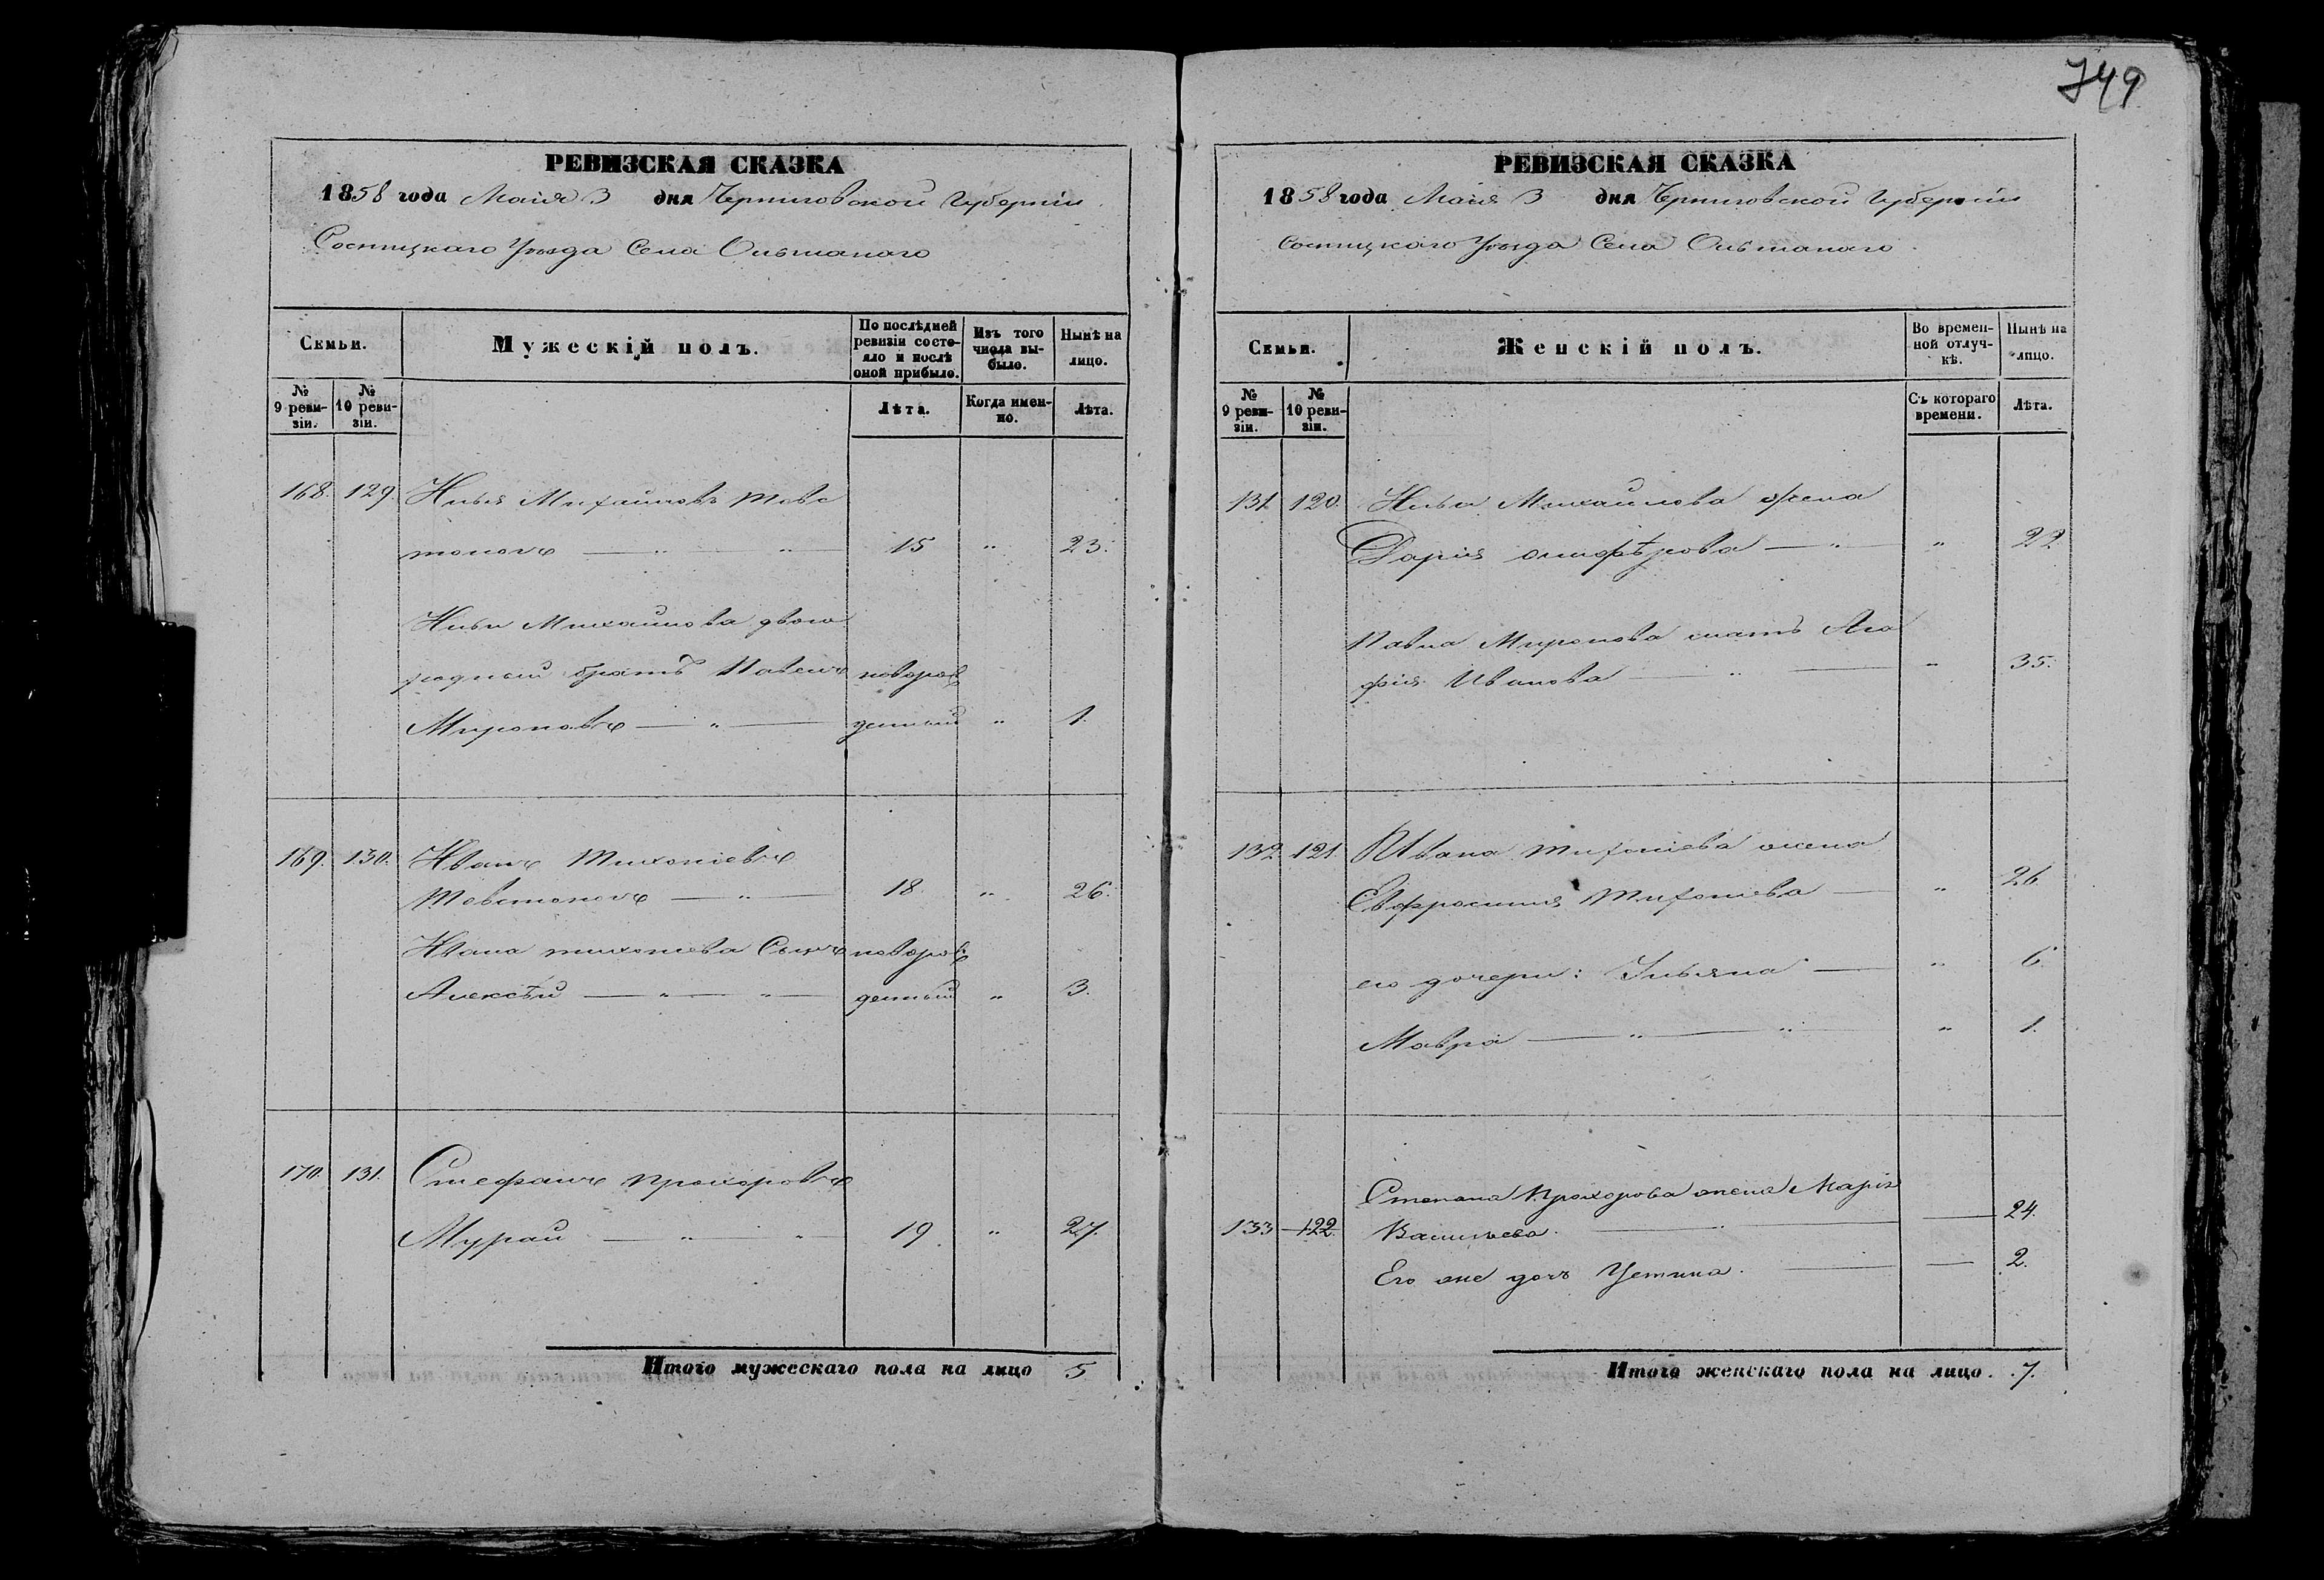 749
РЕВИЗСКАЯ СКАЗКА
1858 года Маія 3 дня Черниговской Губерніи
Сосницкаго Уѣзда Села Ольшанаго
Семьи.
Мужескій полъ.
По послѣдней ревизіи состояло и послѣ оной прибыло.
Изъ того числа выбыло.
Нынѣ на лицо.
№ 9 ревизіи.
№ 10 ревизіи.
Лѣта.
Когда именно.
Лѣта.
168. 129. Илья Михайловъ Товс
тоногъ — " — " — 15 " 23.
Ильи Михайлова двою
родный братъ Павелъ новорож
Мироновъ — " — денный " 1.
169. 130. Иванъ Тихоніевъ
Товстоногъ — " — 18. " 26.
Ивана Тихоніева Сынъ новорож
Алексѣй — " — " — денный " 3.
170. 131. Стефанъ Прохоровъ
Мурай — " — " 19. " 27.
Итого мужескаго пола на лицо 5
РЕВИЗСКАЯ СКАЗКА
1858 года Маія 3 дня Черниговской Губерніи
Сосницкаго Уѣзда Села Ольшанаго
Семьи.
Женскій полъ.
Во временной отлучкѣ.
Нынѣ на лицо.
№ 9 ревизіи.
№ 10 ревизіи.
Съ котораго времени.
Лѣта.
131 120. Ильи Михайлова жена
Дарія — " — " 22
Павла Миронова мать Ага
фія Иванова — " — " 35.
132. 121. Ивана Тихоніева жена
Евфросинія Тихоніева — " 26.
его дочери: Ульяна — " 6.
Мавра — " — " — " 1.
Степана Прохорова жена Марія
133 122. Васильева. — — 24.
Его же дочь Устина. — — 2.
Итого женскаго пола на лицо. 7.